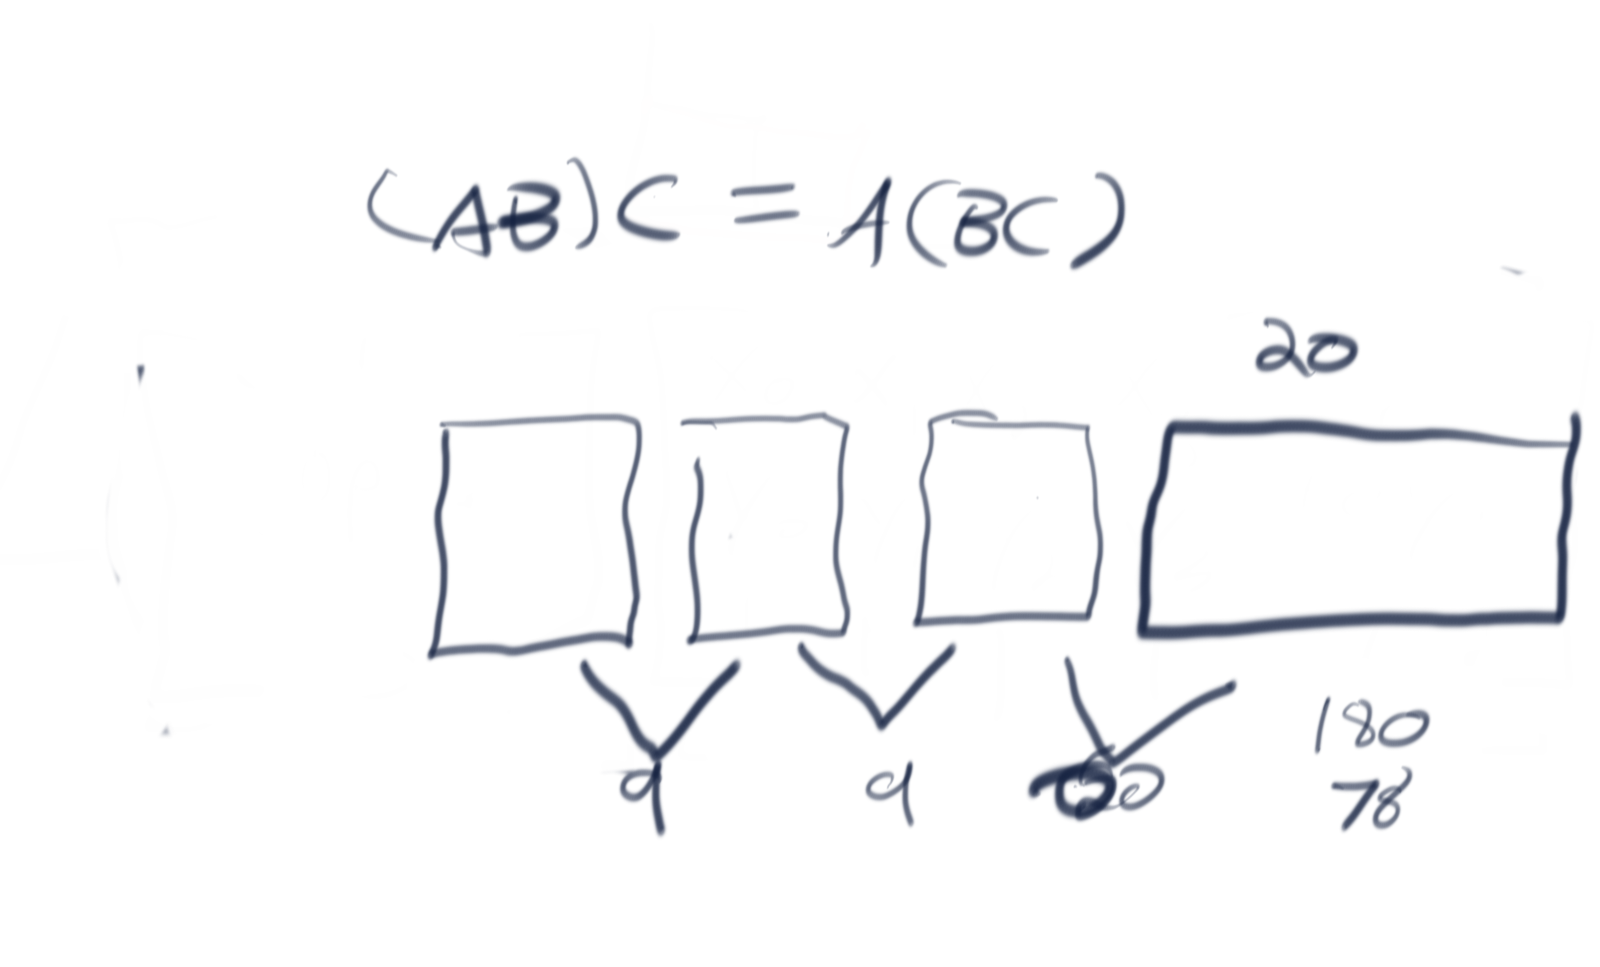 (AB)C = A(BC)
20
9 9 60
180
78